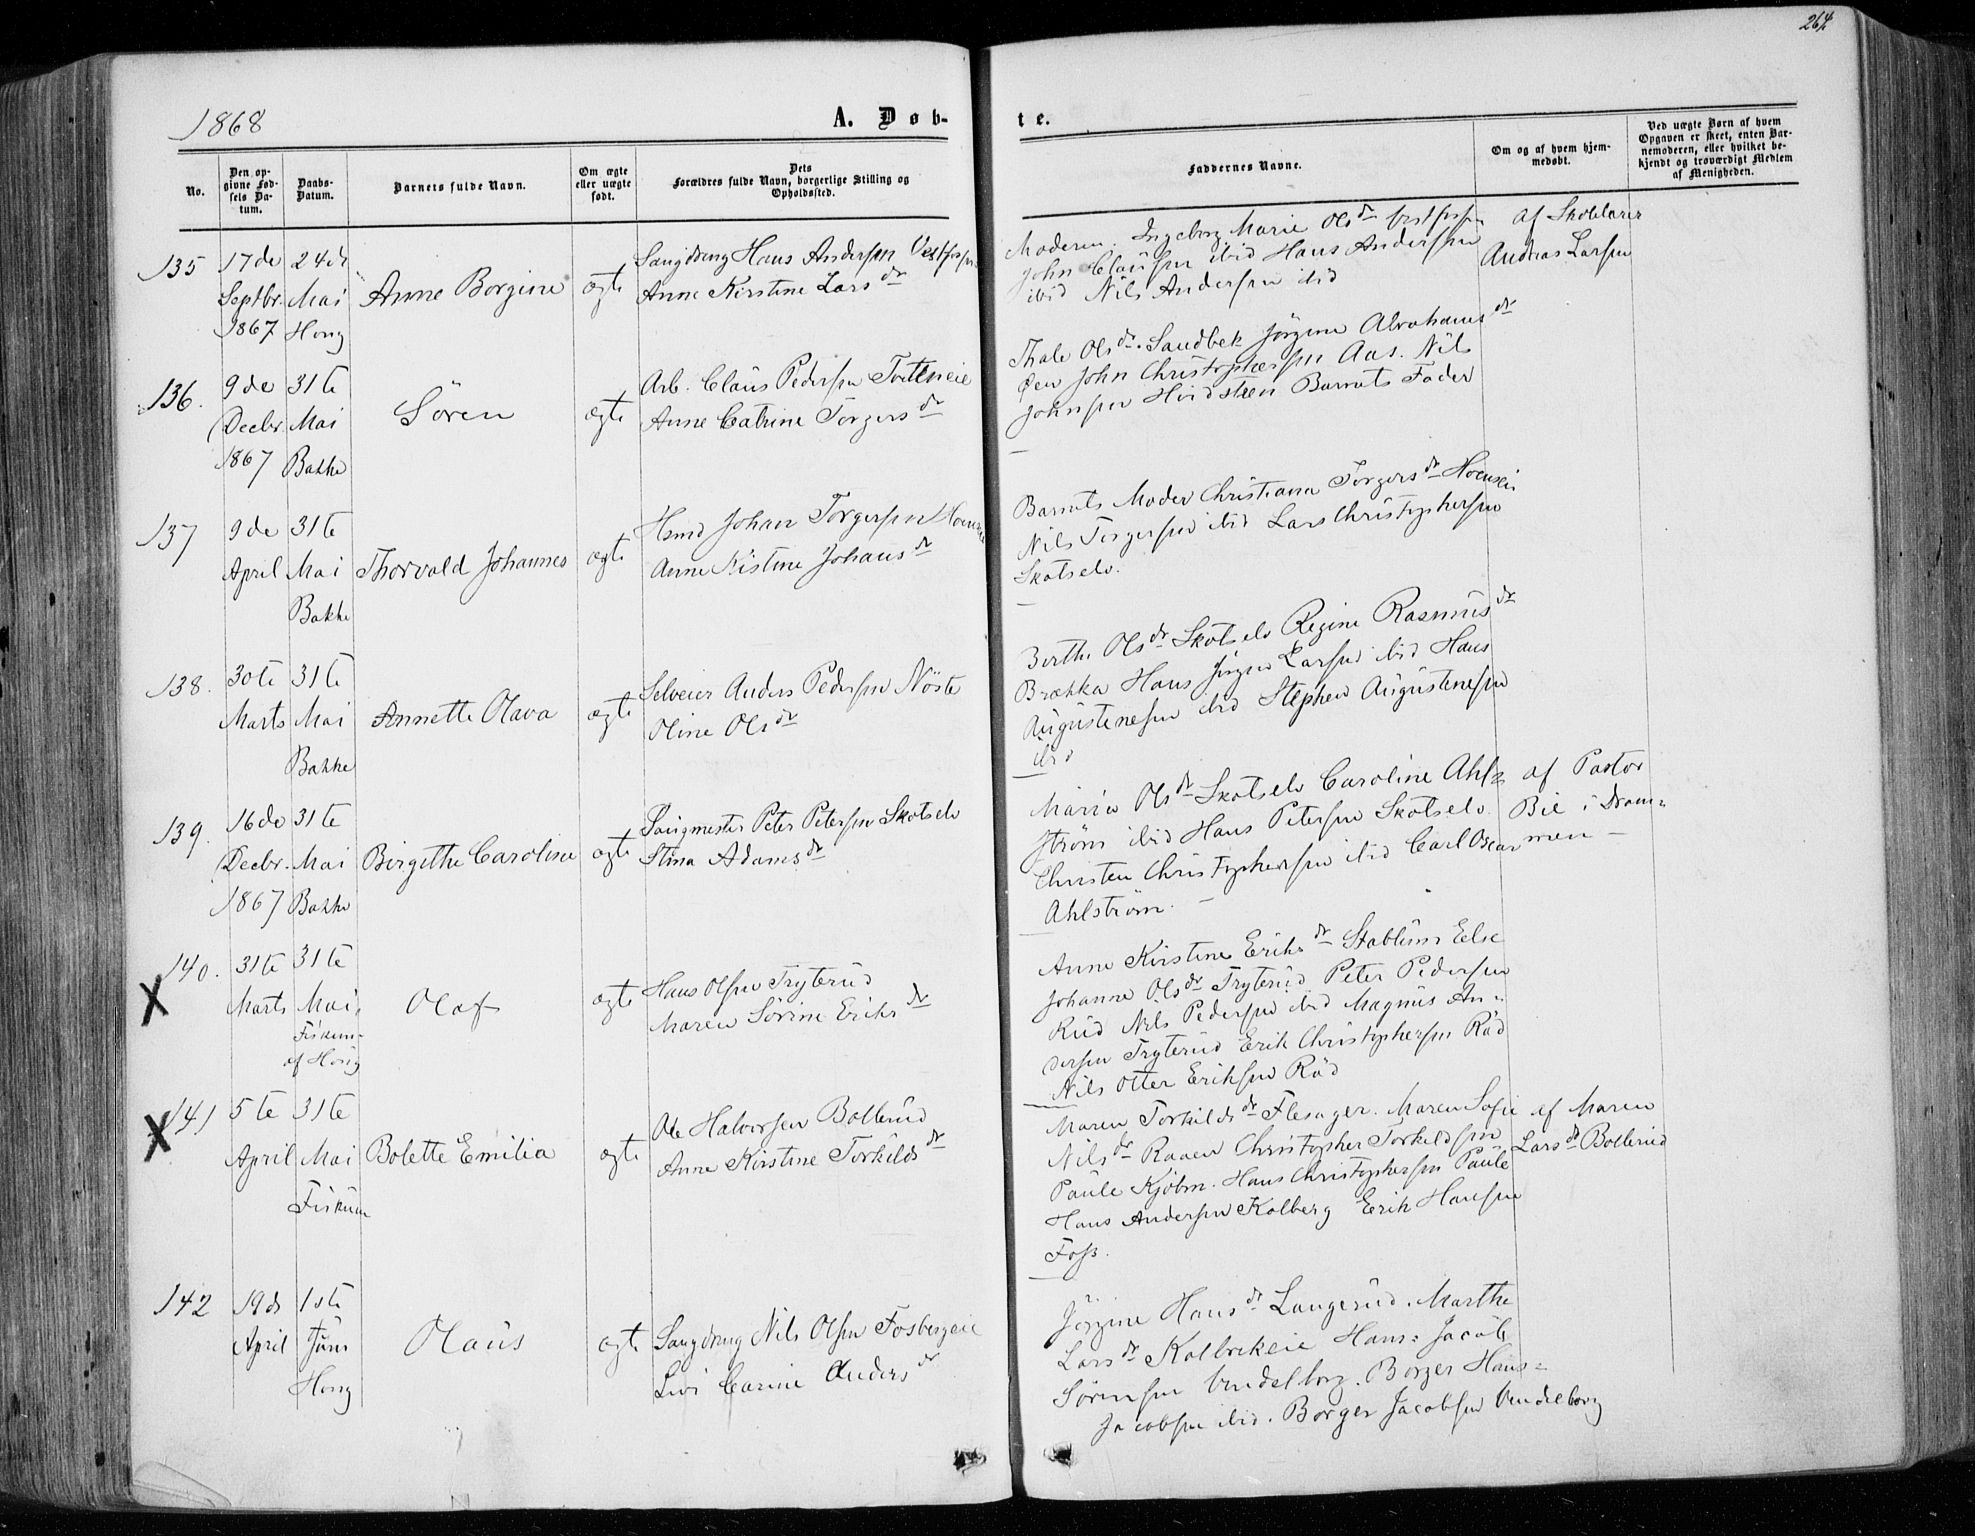 264
1868
A. Døb-
te.
No.
Den op-
givne Fød-
sels Da-
tum.
Daabs-
Datum.
Barnets fulde Navn.
Om ægte
eller uægte
født.
Dets
Forældres fulde Navn, borgerlige Stilling og
Opholdssted.
Faddernes Navne.
Om og af hvem hjem-
medøbt.
Ved uægte Børn af hvem
Opgaven er skeet, enten Bar-
nemoderen, eller hvilket be-
kjendt og troværdigt Medlem
af Menigheden.
135
17de
Septbr.
1867
24de
Mai
Houg
Anne Borgine
ægte
Saugdreng Hans Andersen Vestfossen
Anne Kirstine Larsdr
Moderen. Ingeborg Marie Olsdr Vestfossen
John Clausen ibid Hans Andersen
ibid Nils Andersen ibid
af Skolelærer
Andreas Larsen
136.
9de
Decbr.
1867
31te
Mai
Bakke
Sören
ægte
Arb. Claus Pedersen
Anne Catrine Torgersdr
Thale Olsdr. Sandbek Jörgine Abrahamsdr
Öen John Christophersen Aas. Nils
Johnsen Hvidsteen Barnets Fader
137
9de
April
31te
Mai
Bakke
Thorvald Johannes
ægte
Hsmd Johan Torgersen Hoenseie
Anne Kistine Johansdr
Barnets Moder Christiana Torgersdr Hoenseie
Nils Torgersen ibid Lars Christophersen
Skotselv.
138.
30te
Marts
31te
Mai
Bakke
Annette Olava
ægte
Selveier Anders Pedersen Nöste
Oline Olsdr
Berthe Olsdr Skotselv Regine Rasmusdr
Brækka Hans Jörgen Larsen ibid Hans
Augustenesen ibid Stephen Augustenesen
ibid
139.
16de
Decbr.
1867
31te
Mai
Bakke
Birgitthe Caroline
ægte
Saugmester Peter Petersen Skotselv
Stina Adamsdr
Maria Olsdr Skotselv Caroline Ahl=
ström ibid Hans Petersen Skotselv
Christen Christophersen ibid Carl Oscar
Ahlström. –
af Pastor
Bie i Dram=
men –
X 140.
31te
Marts
31te
Mai,
Fiskum-
af Houg
Olaf
ægte
Hans Olsen Tryterud
Maren Sörine Eriksdr
Anne Kirstine Eriksdr Stablum Else
Johanne Olsdr Tryterud Peter Pedersen
Rud Nils Pedersen ibid Magnus An=
dersen Tryterud Erik Christophersen Röd
Nils Otter Eriksen Röd
X 141
5te
April
31te
Mai
Fiskum
Bolette Emilia
ægte
Ole Halvorsen Bollerud
Anne Kirstine Torkildsdr
Maren Torkildsdr Flesager. Maren Sofie
Nilsdr Raaen Christopher Torkildsen
Paule Kjöbm. Hans Christophersen Paule
Hans Andersen Kolberg Erik Hansen
Foss.
af Maren
Larsdr Bollerud
142
19de
April
1ste
Juni
Houg
Olaus
ægte
Saugdreng Nils Olsen Fosbergeie
Livi Carine Andersdr
Jörgine Hansdr Langerud. Marthe
Larsdr Kolbrekeie Hans= Jacob
Sörensen Vendelborg. Borger Hans=
Jacobsen ibid. Borger Jacobsen Vendelborg